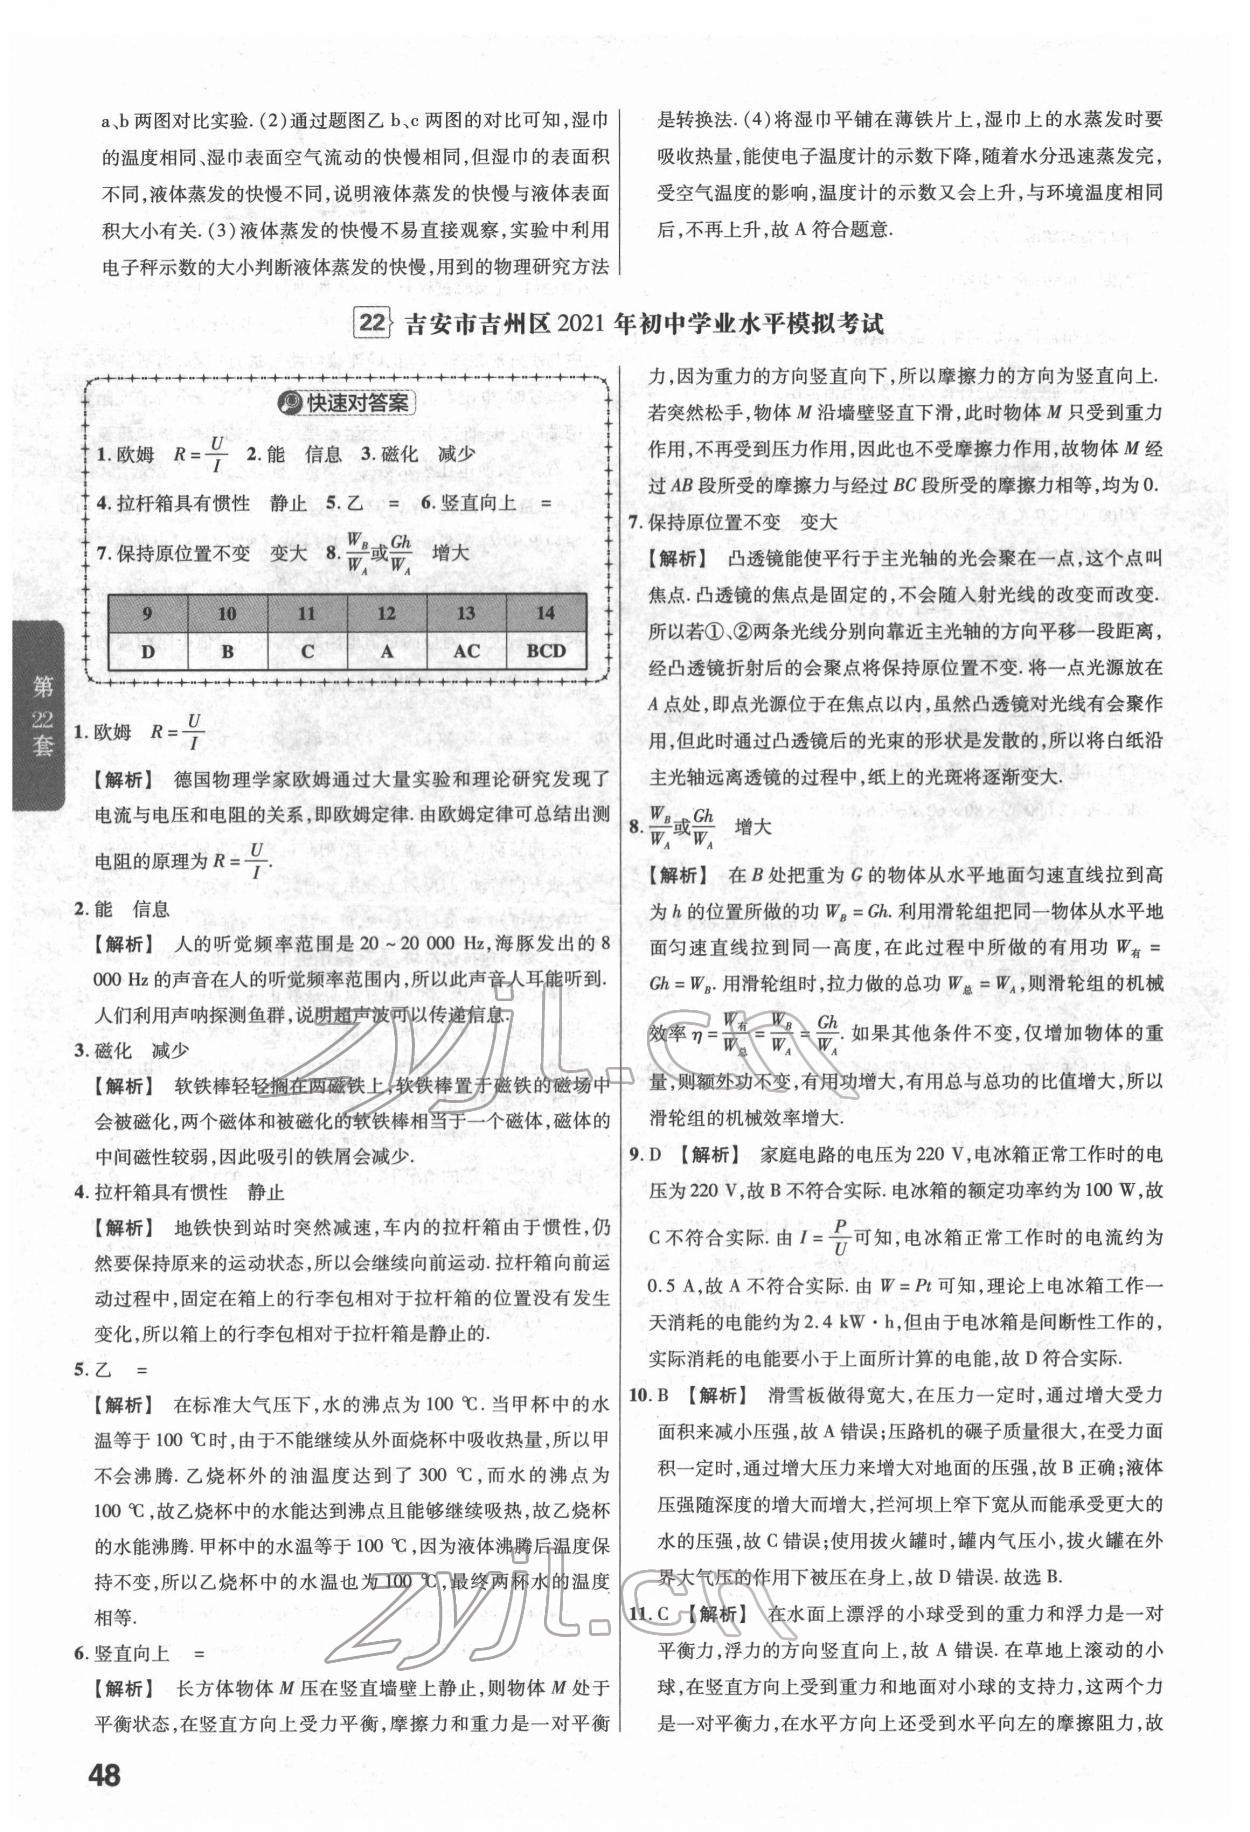 a、b 两图对比实验. (2)通过题图乙 b、c 两图的对比可知,湿巾
的温度相同、湿巾表面空气流动的快慢相同,但湿巾的表面积
不同,液体蒸发的快慢不同,说明液体蒸发的快慢与液体表面
积大小有关. (3)液体蒸发的快慢不易直接观察,实验中利用
电子秤示数的大小判断液体蒸发的快慢,用到的物理研究方法
是转换法. (4)将湿巾平铺在薄铁片上,湿巾上的水蒸发时要
吸收热量,能使电子温度计的示数下降,随着水分迅速蒸发完,
受空气温度的影响,温度计的示数又会上升,与环境温度相同
后,不再上升,故 A 符合题意.
22 吉安市吉州区 2021 年初中学业水平模拟考试
快速对答案
1. 欧姆 R = U/I 2. 能 信息 3. 磁化 减少
4. 拉杆箱具有惯性 静止 5. 乙 = 6. 竖直向上 =
7. 保持原位置不变 变大 8. W_B/W_A 或 Gh/W_A 增大
9 10 11 12 13 14
D B C A AC BCD
第22套
1. 欧姆 R = U/I
【解析】 德国物理学家欧姆通过大量实验和理论研究发现了
电流与电压和电阻的关系,即欧姆定律. 由欧姆定律可总结出测
电阻的原理为 R = U/I.
2. 能 信息
【解析】 人的听觉频率范围是 20 ~ 20 000 Hz,海豚发出的 8
000 Hz 的声音在人的听觉频率范围内,所以此声音人耳能听到.
人们利用声呐探测鱼群,说明超声波可以传递信息.
3. 磁化 减少
【解析】 软铁棒轻轻搁在两磁铁上,软铁棒置于磁铁的磁场中
会被磁化,两个磁体和被磁化的软铁棒相当于一个磁体,磁体的
中间磁性较弱,因此吸引的铁屑会减少.
4. 拉杆箱具有惯性 静止
【解析】 地铁快到站时突然减速,车内的拉杆箱由于惯性,仍
然要保持原来的运动状态,所以会继续向前运动. 拉杆箱向前运
动过程中,固定在箱上的行李包相对于拉杆箱的位置没有发生
变化,所以箱上的行李包相对于拉杆箱是静止的.
5. 乙 =
【解析】 在标准大气压下,水的沸点为 100 ℃. 当甲杯中的水
温等于 100 ℃时,由于不能继续从外面烧杯中吸收热量,所以甲
不会沸腾. 乙烧杯外的油温度达到了 300 ℃,而水的沸点为
100 ℃,故乙烧杯中的水能达到沸点且能够继续吸热,故乙烧杯
的水能沸腾. 甲杯中的水温等于 100 ℃,因为液体沸腾后温度保
持不变,所以乙烧杯中的水温也为 100 ℃,最终两杯水的温度
相等.
6. 竖直向上 =
【解析】 长方体物体 M 压在竖直墙壁上静止,则物体 M 处于
平衡状态,在竖直方向上受力平衡,摩擦力和重力是一对平衡
48
力,因为重力的方向竖直向下,所以摩擦力的方向为竖直向上.
若突然松手,物体 M 沿墙壁竖直下滑,此时物体 M 只受到重力
作用,不再受到压力作用,因此也不受摩擦力作用,故物体 M 经
过 AB 段所受的摩擦力与经过 BC 段所受的摩擦力相等,均为 0.
7. 保持原位置不变 变大
【解析】 凸透镜能使平行于主光轴的光会聚在一点,这个点叫
焦点. 凸透镜的焦点是固定的,不会随入射光线的改变而改变.
所以若①、②两条光线分别向靠近主光轴的方向平移一段距离,
经凸透镜折射后的会聚点将保持原位置不变. 将一点光源放在
A 点处,即点光源位于在焦点以内,虽然凸透镜对光线有会聚作
用,但此时通过凸透镜后的光束的形状是发散的,所以将白纸沿
主光轴远离透镜的过程中,纸上的光斑将逐渐变大.
8. W_B/W_A 或 Gh/W_A 增大
【解析】 在 B 处把重为 G 的物体从水平地面匀速直线拉到高
为 h 的位置所做的功 W_B = Gh. 利用滑轮组把同一物体从水平地
面匀速直线拉到同一高度,在此过程中所做的有用功 W_有 =
Gh = W_B. 用滑轮组时,拉力做的总功 W_总 = W_A,则滑轮组的机械
效率 η = W_有/W_总 = W_B/W_A = Gh/W_A. 如果其他条件不变,仅增加物体的重
量,则额外功不变,有用功增大,有用总与总功的比值增大,所以
滑轮组的机械效率增大.
9. D 【解析】 家庭电路的电压为 220 V,电冰箱正常工作时的电
压为 220 V,故 B 不符合实际. 电冰箱的额定功率约为 100 W,故
C 不符合实际. 由 I = P/U 可知,电冰箱正常工作时的电流约为
0.5 A,故 A 不符合实际. 由 W = Pt 可知,理论上电冰箱工作一
天消耗的电能约为 2.4 kW·h,但由于电冰箱是间断性工作的,
实际消耗的电能要小于上面所计算的电能,故 D 符合实际.
10. B 【解析】 滑雪板做得宽大,在压力一定时,通过增大受力
面积来减小压强,故 A 错误;压路机的碾子质量很大,在受力面
积一定时,通过增大压力来增大对地面的压强,故 B 正确;液体
压强随深度的增大而增大,拦河坝上窄下宽从而能承受更大的
水的压强,故 C 错误;使用拔火罐时,罐内气压小,拔火罐在外
界大气压的作用下被压在身上,故 D 错误. 故选 B.
11. C 【解析】 在水面上漂浮的小球受到的重力和浮力是一对
平衡力,浮力的方向竖直向上,故 A 错误. 在草地上滚动的小
球,在竖直方向上受到重力和地面对小球的支持力,这两个力
是一对平衡力,在水平方向上还受到水平向左的摩擦阻力,故
zyjl.cn
zyjl.cn